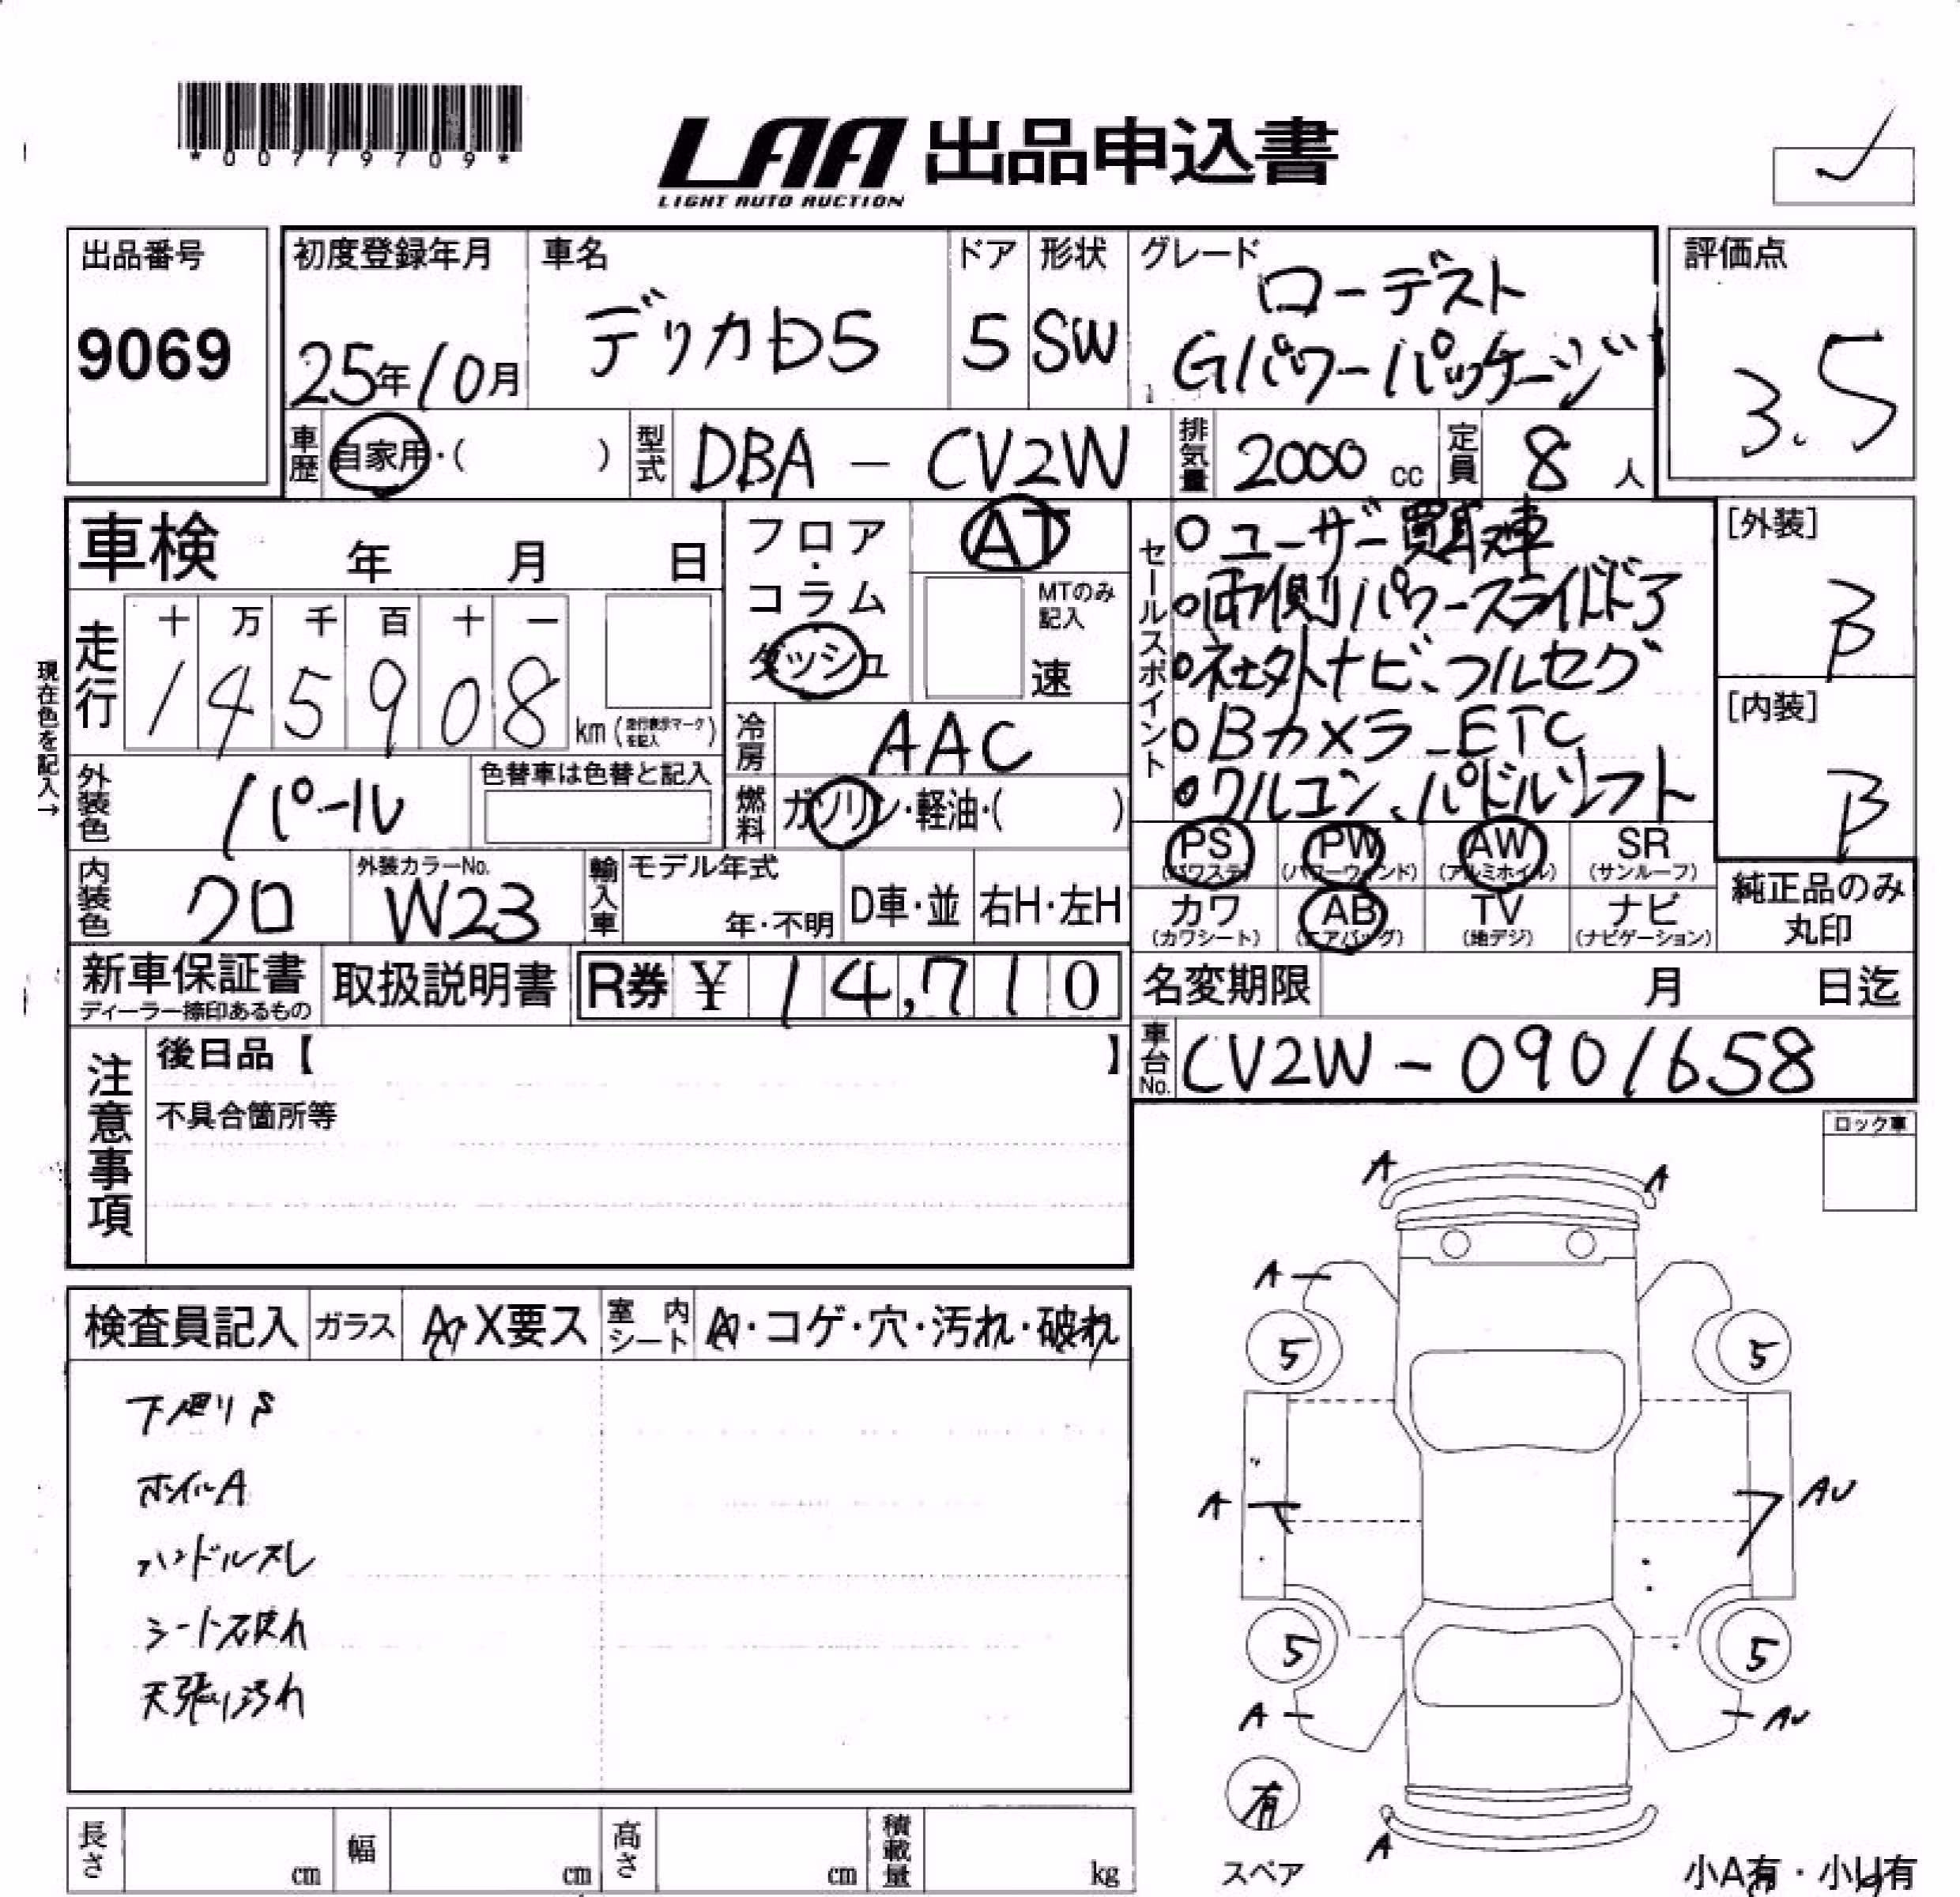 *00779709*
LAA 出品申込書
LIGHT AUTO AUCTION
出品番号
9069
初度登録年月
25年10月
車名
デリカD5
ドア
5
形状
SW
グレード
ローデスト
Gパワーパッケージ
評価点
3.5
車歴
自家用・( )
型式
DBA - CV2W
排気量
2000 cc
定員
8 人
車検 年 月 日
フロア・
コラム
ダッシュ
AT
MTのみ
記入
速
走行
十 万 千 百 十 一
1 4 5 9 0 8 km(走行表示マークを記入)
現在色を記入→
冷房
AAC
セールスポイント
○ユーザー買取車
○両側パワースライドドア
○社外ナビ、フルセグ
○Bカメラ_ETC
○クルコン、パドルシフト
[外装]
B
[内装]
B
外装色
パール
色替車は色替と記入
燃料
ガソリン・軽油・( )
PS
(パワステ)
PW
(パワーウィンド)
AW
(アルミホイル)
SR
(サンルーフ)
内装色
クロ
外装カラーNo.
W23
輸入車
モデル年式
年・不明
D車・並
右H・左H
カワ
(カワシート)
AB
(エアバッグ)
TV
(地デジ)
ナビ
(ナビゲーション)
純正品のみ
丸印
新車保証書
ディーラー捺印あるもの
取扱説明書
R券 ¥ 14,710
名変期限 月 日迄
車台No.
CV2W - 0901658
注意事項
後日品【 】
不具合箇所等
ロック車
検査員記入
ガラス
A・X要ス
室内
シート
A・コゲ・穴・汚れ・破れ
下廻りS
ホイルA
ハンドルスレ
シート破れ
天張り汚れ
A A
A
5 5
A AU
5 5
A AU
有
スペア
A
小A有・小U有
長さ cm
幅 cm
高さ cm
積載量 kg